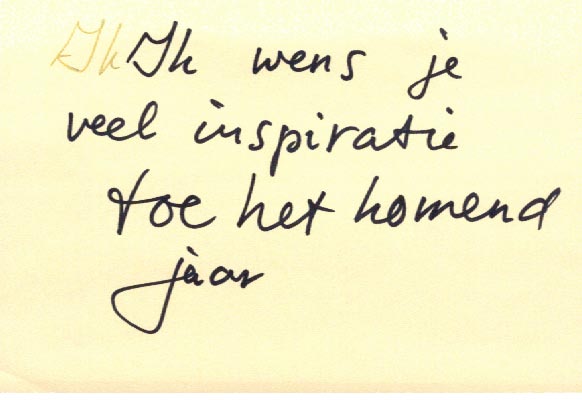 Ik Ik wens je
veel inspiratie
toe het komend
jaar